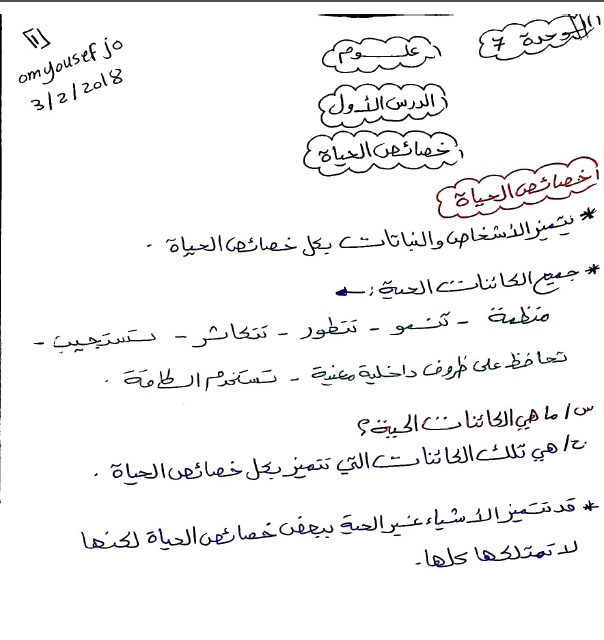 [1]
omyousef jo
3/2/2018
الوحدة 7
علوم
الدرس الأول
خصائص الحياة
خصائص الحياة
* يتميز الأشخاص والنباتات بكل خصائص الحياة .
* جميع الكائنات الحية : ←
منظمة - تنمو - تتطور - تتكاثر - تستجيب -
تحافظ على ظروف داخلية معينة - تستخدم الطاقة .
س/ ما هي الكائنات الحية ؟
ج/ هي تلك الكائنات التي تتميز بكل خصائص الحياة .
* قد تتميز الأشياء غير الحية ببعض خصائص الحياة لكنها
لا تمتلكها كلها .